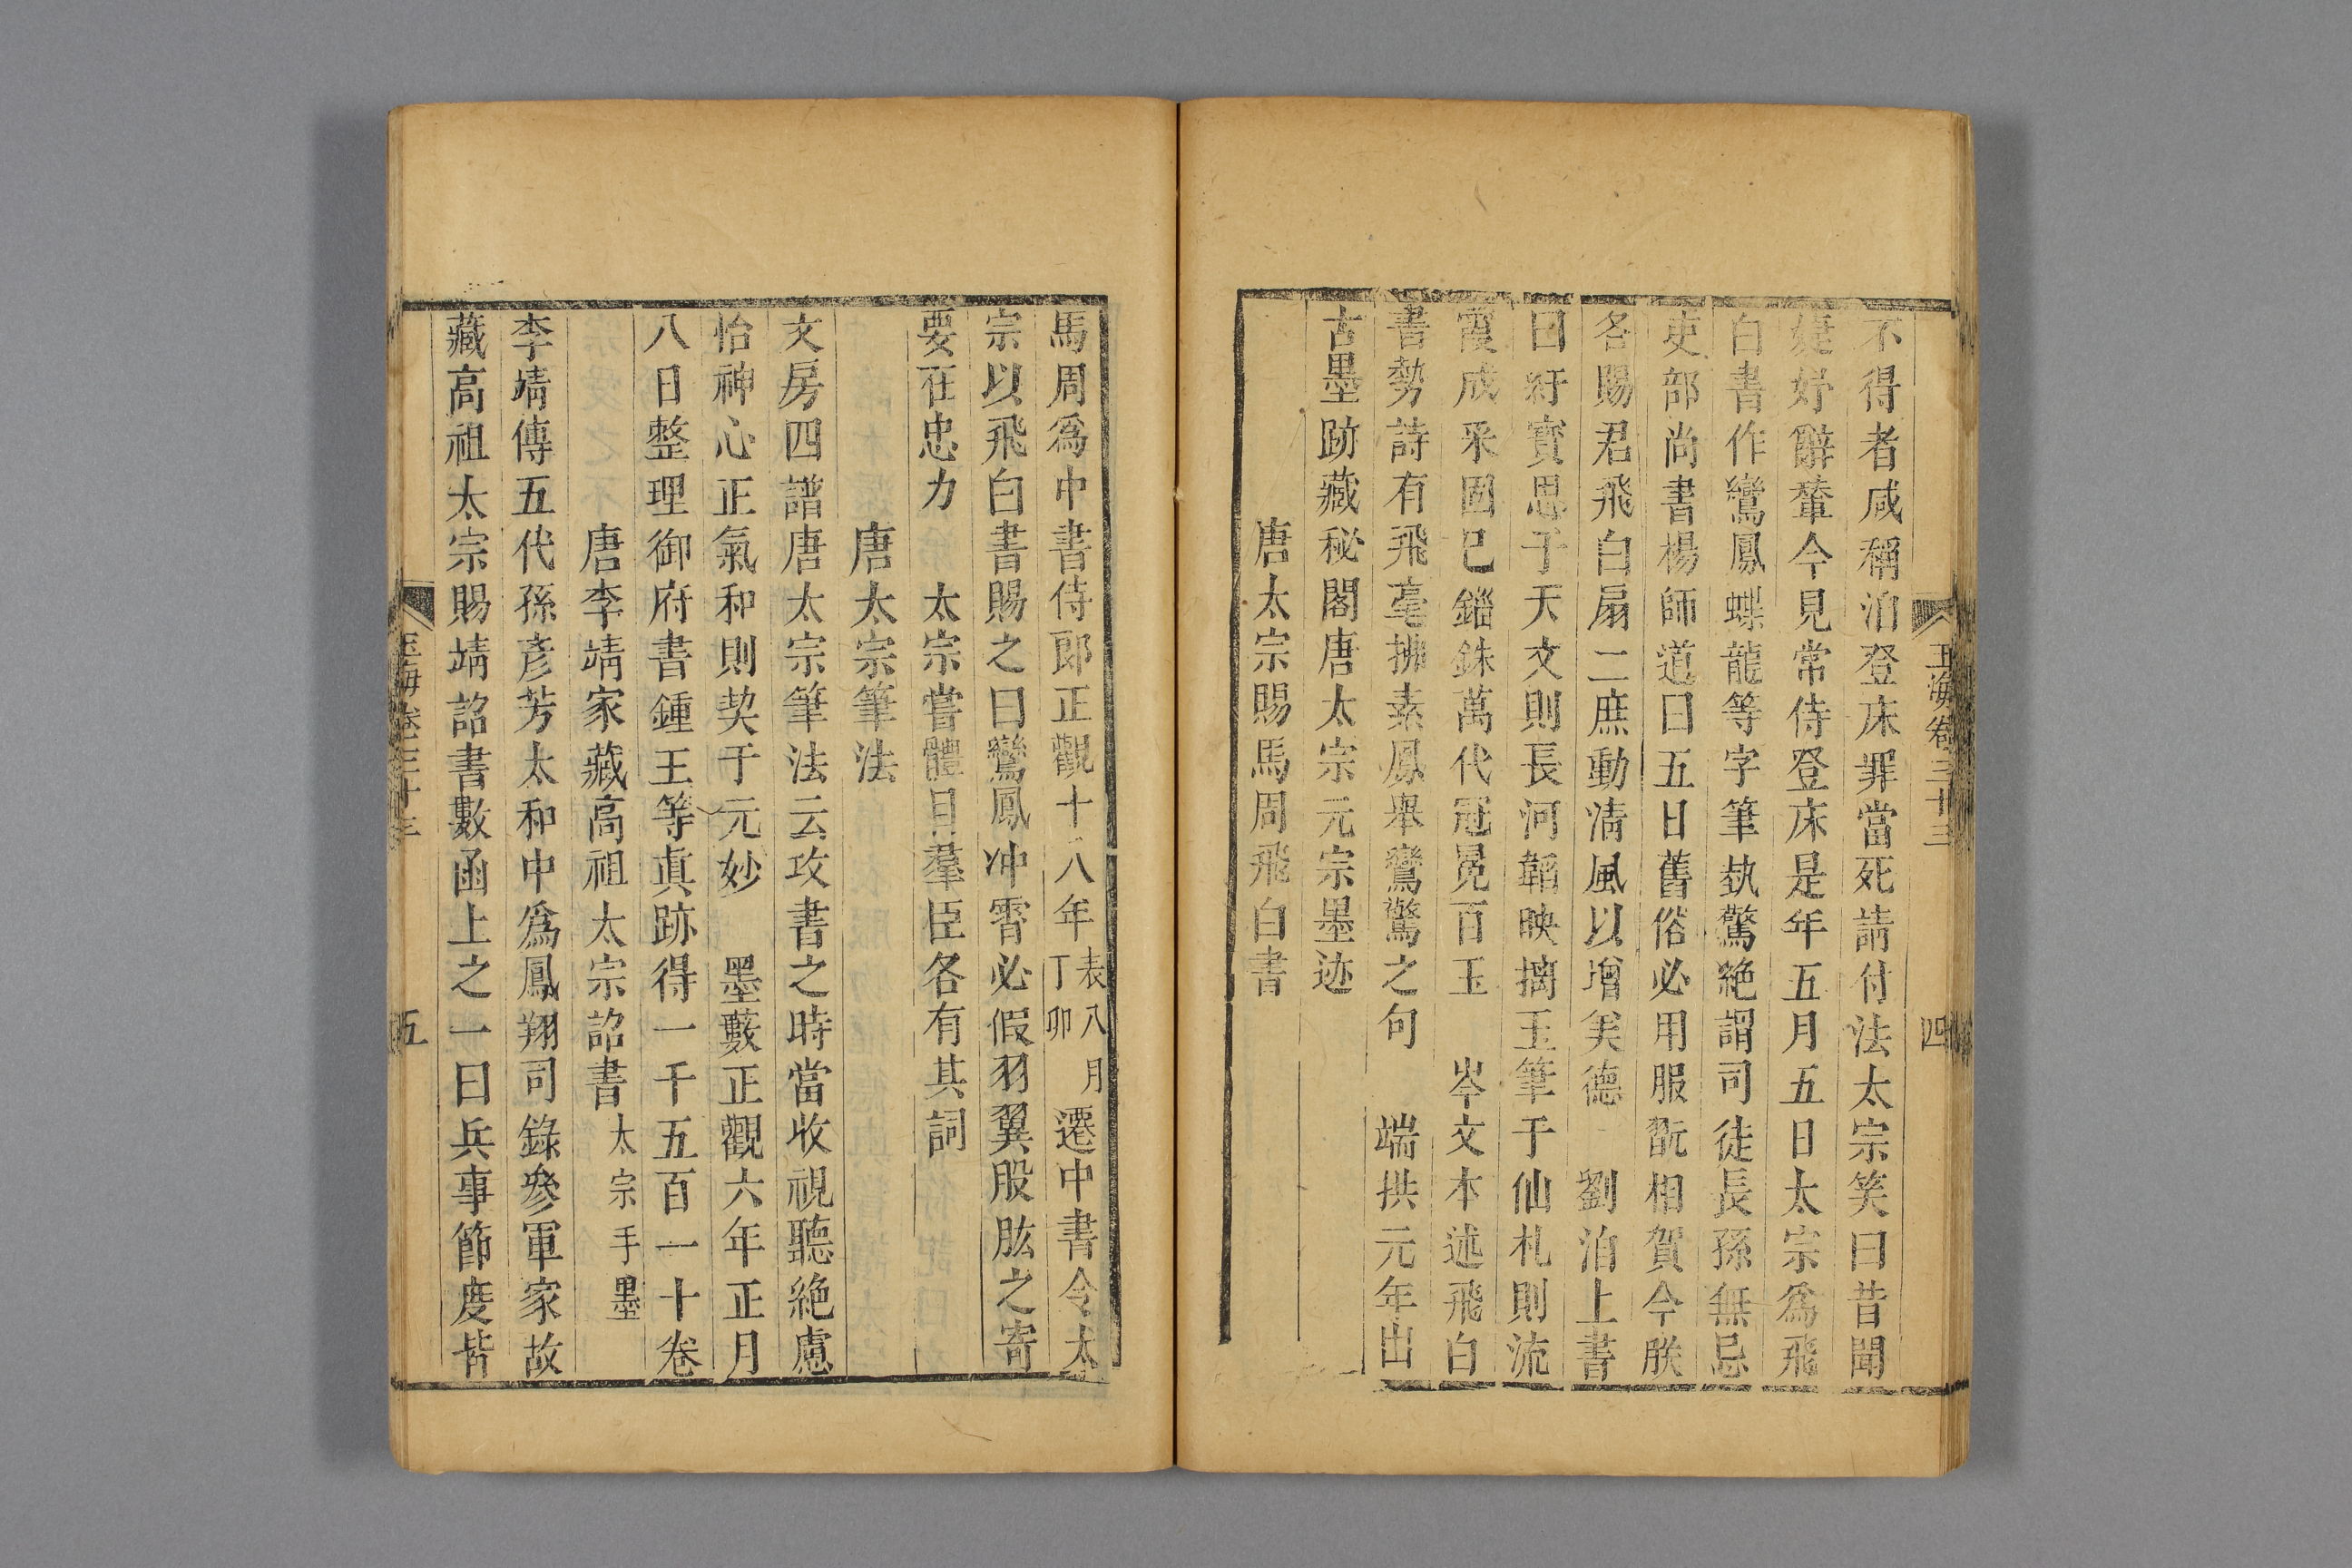 玉海卷三十三 四
不得者咸稱洎登床罪當死請付法太宗笑曰昔聞
婕妤辭輦今見常侍登床是年五月五日太宗爲飛
白書作鸞鳳蝶龍等字筆埶驚絶謂司徒長孫無忌
吏部尚書楊師道曰五日舊俗必用服翫相賀今朕
各賜君飛白扇二庶動淸風以增美德 劉洎上書
曰紆寳思于天文則長河韜映摛玉筆于仙札則流
霞成釆固巳錙銖萬代冠冕百王 岑文本述飛白
書勢詩有飛毫拂素鳳舉鸞驚之句 端拱元年出
古墨跡藏秘閣唐太宗元宗墨迹
唐太宗賜馬周飛白書
馬周爲中書侍郎正觀十八年表八月丁卯遷中書令太
宗以飛白書賜之曰鸞鳳冲霄必假羽翼股肱之寄
要在忠力 太宗嘗體目羣臣各有其詞
唐太宗筆法
文房四譜唐太宗筆法云攻書之時當收視聽絶慮
怡神心正氣和則契于元妙 墨藪正觀六年正月
八日整理御府書鍾王等眞跡得一千五百一十卷
唐李靖家藏高祖太宗詔書太宗手墨
李靖傳五代孫彥芳太和中爲鳳翔司錄參軍家故
藏高祖太宗賜靖詔書數函上之一曰兵事節度皆
玉海卷三十三 五